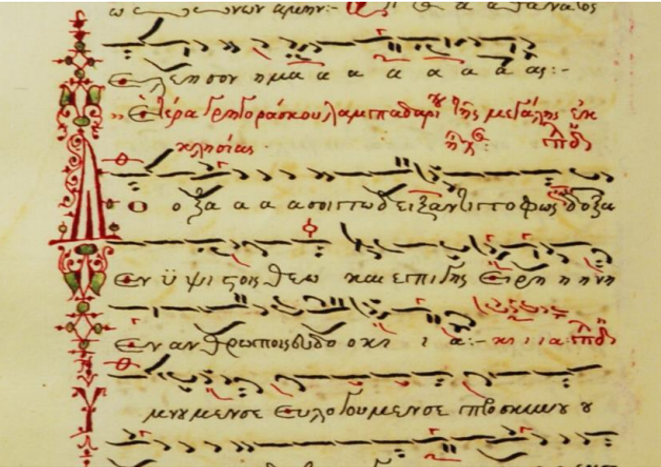 ω νων αμην:- α α θανατος
Ελεησον ημα α α α α α α ας:-
Ετέρα Γρηγοράσκου λαμπαδαρίου τῆς μεγάλης ἐκ
κλησίας ἦχος
Δ ο ξα α α α σοι τω δειξαντι το φως δοξα
Εν ϋψιστοις θεω και επι γης Ειρη η νη
Εν ανθρωποις ευδο ο κι ι ι α:- κι ι ι α
μνουμεν σε Ευλογουμεν σε προσκυνου ου